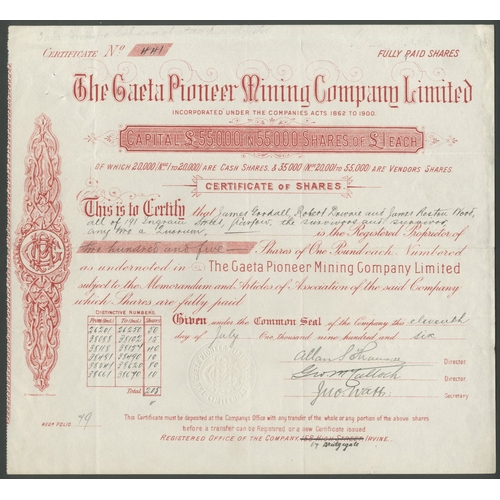 CERTIFICATE Nº 441
FULLY PAID SHARES
The Gaeta Pioneer Mining Company Limited
INCORPORATED UNDER THE COMPANIES ACTS 1862 TO 1900.
CAPITAL £55,000 IN 55,000 SHARES OF £1 EACH
OF WHICH 20,000 (Nos 1 TO 20,000) ARE CASH SHARES, & 35,000 (Nos 20,001 TO 55,000) ARE VENDORS SHARES
CERTIFICATE OF SHARES
This is to Certify that James Goodall, Robert Downie and James Rostin Wood,
all of 191 Ingram Street, Glasgow, the survivors and survivor
any two a Quorum, is the Registered Proprietor of
two hundred and five Shares of One Pound each, Numbered
as undernoted in The Gaeta Pioneer Mining Company Limited
subject to the Memorandum and Articles of Association of the said Company
which Shares are fully paid
DISTINCTIVE NUMBERS.
From (incl.) To (incl.) Shares
Given under the Common Seal of the Company this eleventh
26201 26250 50
day of July One thousand nine hundred and six
38088 38102 15
38118 38157 40
38481 38490 10
38541 38620 80
38661 38670 10
Total, 205
Director
Director
Secretary
REGD FOLIO 49
This Certificate must be deposited at the Company's Office with any transfer of the whole or any portion of the above shares
before a transfer can be Registered or a new Certificate issued
REGISTERED OFFICE OF THE COMPANY 158 HIGH STREET IRVINE.
17 Bridgegate